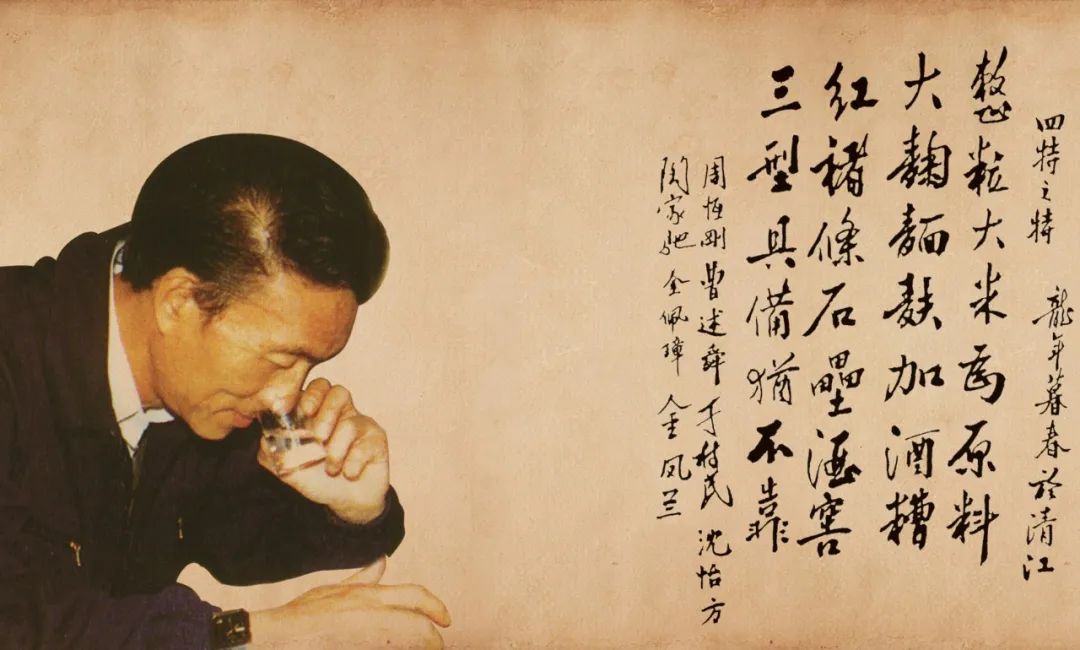 四特之特 龍年暮春於清江
整粒大米為原料
大麯麵麩加酒糟
紅褚條石壘酒窖
三型具備猶不靠
周恆剛 曹述舜 于樹民 沈怡方
陶家馳 全佩璋 金鳳兰